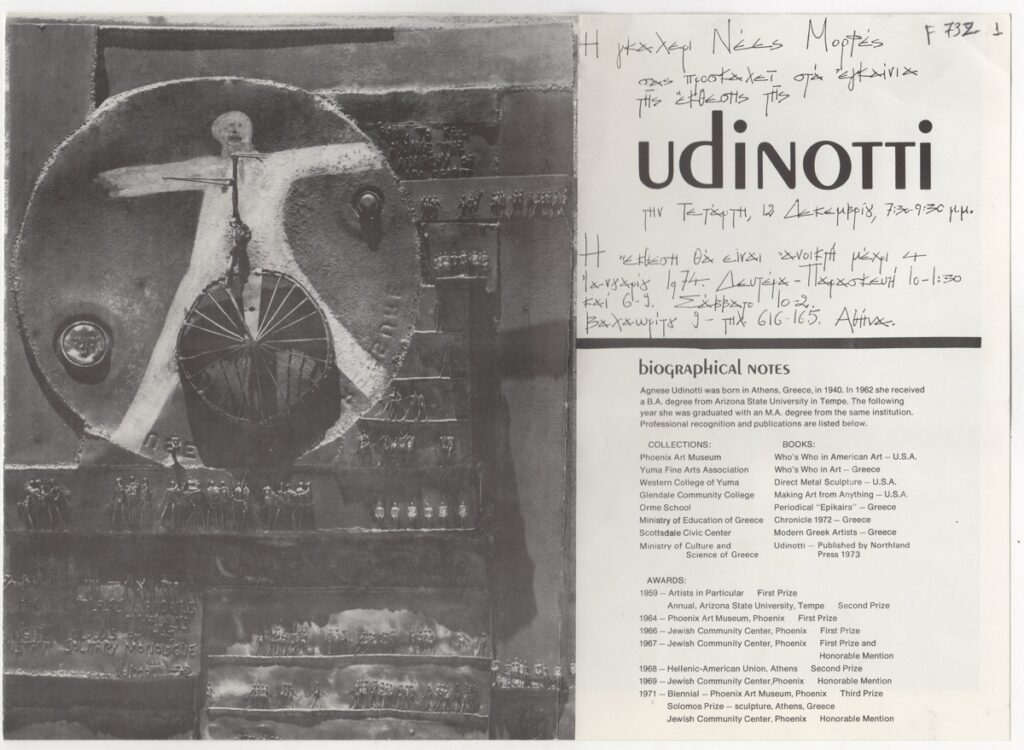 Η γκαλερί Νέες Μορφές
σας προσκαλεῖ στά ἐγκαίνια
τῆς ἔκθεσης τῆς
udinotti
τήν Τετάρτη, 12 Δεκεμβρίου, 7:30-9:30 μ.μ.
Η ἔκθεση θά εἶναι ἀνοικτή μέχρι 4
Ἰανουαρίου 1974. Δευτέρα - Παρασκευή 10-1:30
καί 6-9. Σάββατο 10-2.
Βαλαωρίτου 9 - τηλ. 616-165. Αθήνα.
biographical notes
Agnese Udinotti was born in Athens, Greece, in 1940. In 1962 she received
a B.A. degree from Arizona State University in Tempe. The following
year she was graduated with an M.A. degree from the same institution.
Professional recognition and publications are listed below.
COLLECTIONS:
Phoenix Art Museum
Yuma Fine Arts Association
Western College of Yuma
Glendale Community College
Orme School
Ministry of Education of Greece
Scottsdale Civic Center
Ministry of Culture and
Science of Greece
BOOKS:
Who's Who in American Art – U.S.A.
Who's Who in Art – Greece
Direct Metal Sculpture – U.S.A.
Making Art from Anything – U.S.A.
Periodical "Epikaira" – Greece
Chronicle 1972 – Greece
Modern Greek Artists – Greece
Udinotti – Published by Northland
Press 1973
AWARDS:
1959 – Artists in Particular First Prize
Annual, Arizona State University, Tempe Second Prize
1964 – Phoenix Art Museum, Phoenix First Prize
1966 – Jewish Community Center, Phoenix First Prize
1967 – Jewish Community Center, Phoenix First Prize and
Honorable Mention
1968 – Hellenic-American Union, Athens Second Prize
1969 – Jewish Community Center,Phoenix Honorable Mention
1971 – Biennial – Phoenix Art Museum, Phoenix Third Prize
Solomos Prize – sculpture, Athens, Greece
Jewish Community Center, Phoenix Honorable Mention